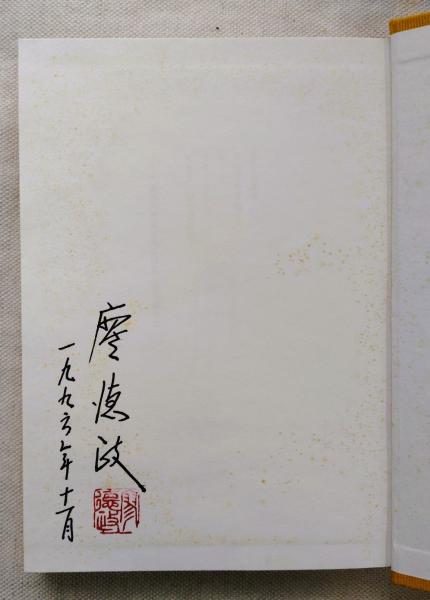 廖德政
一九九六年十一月